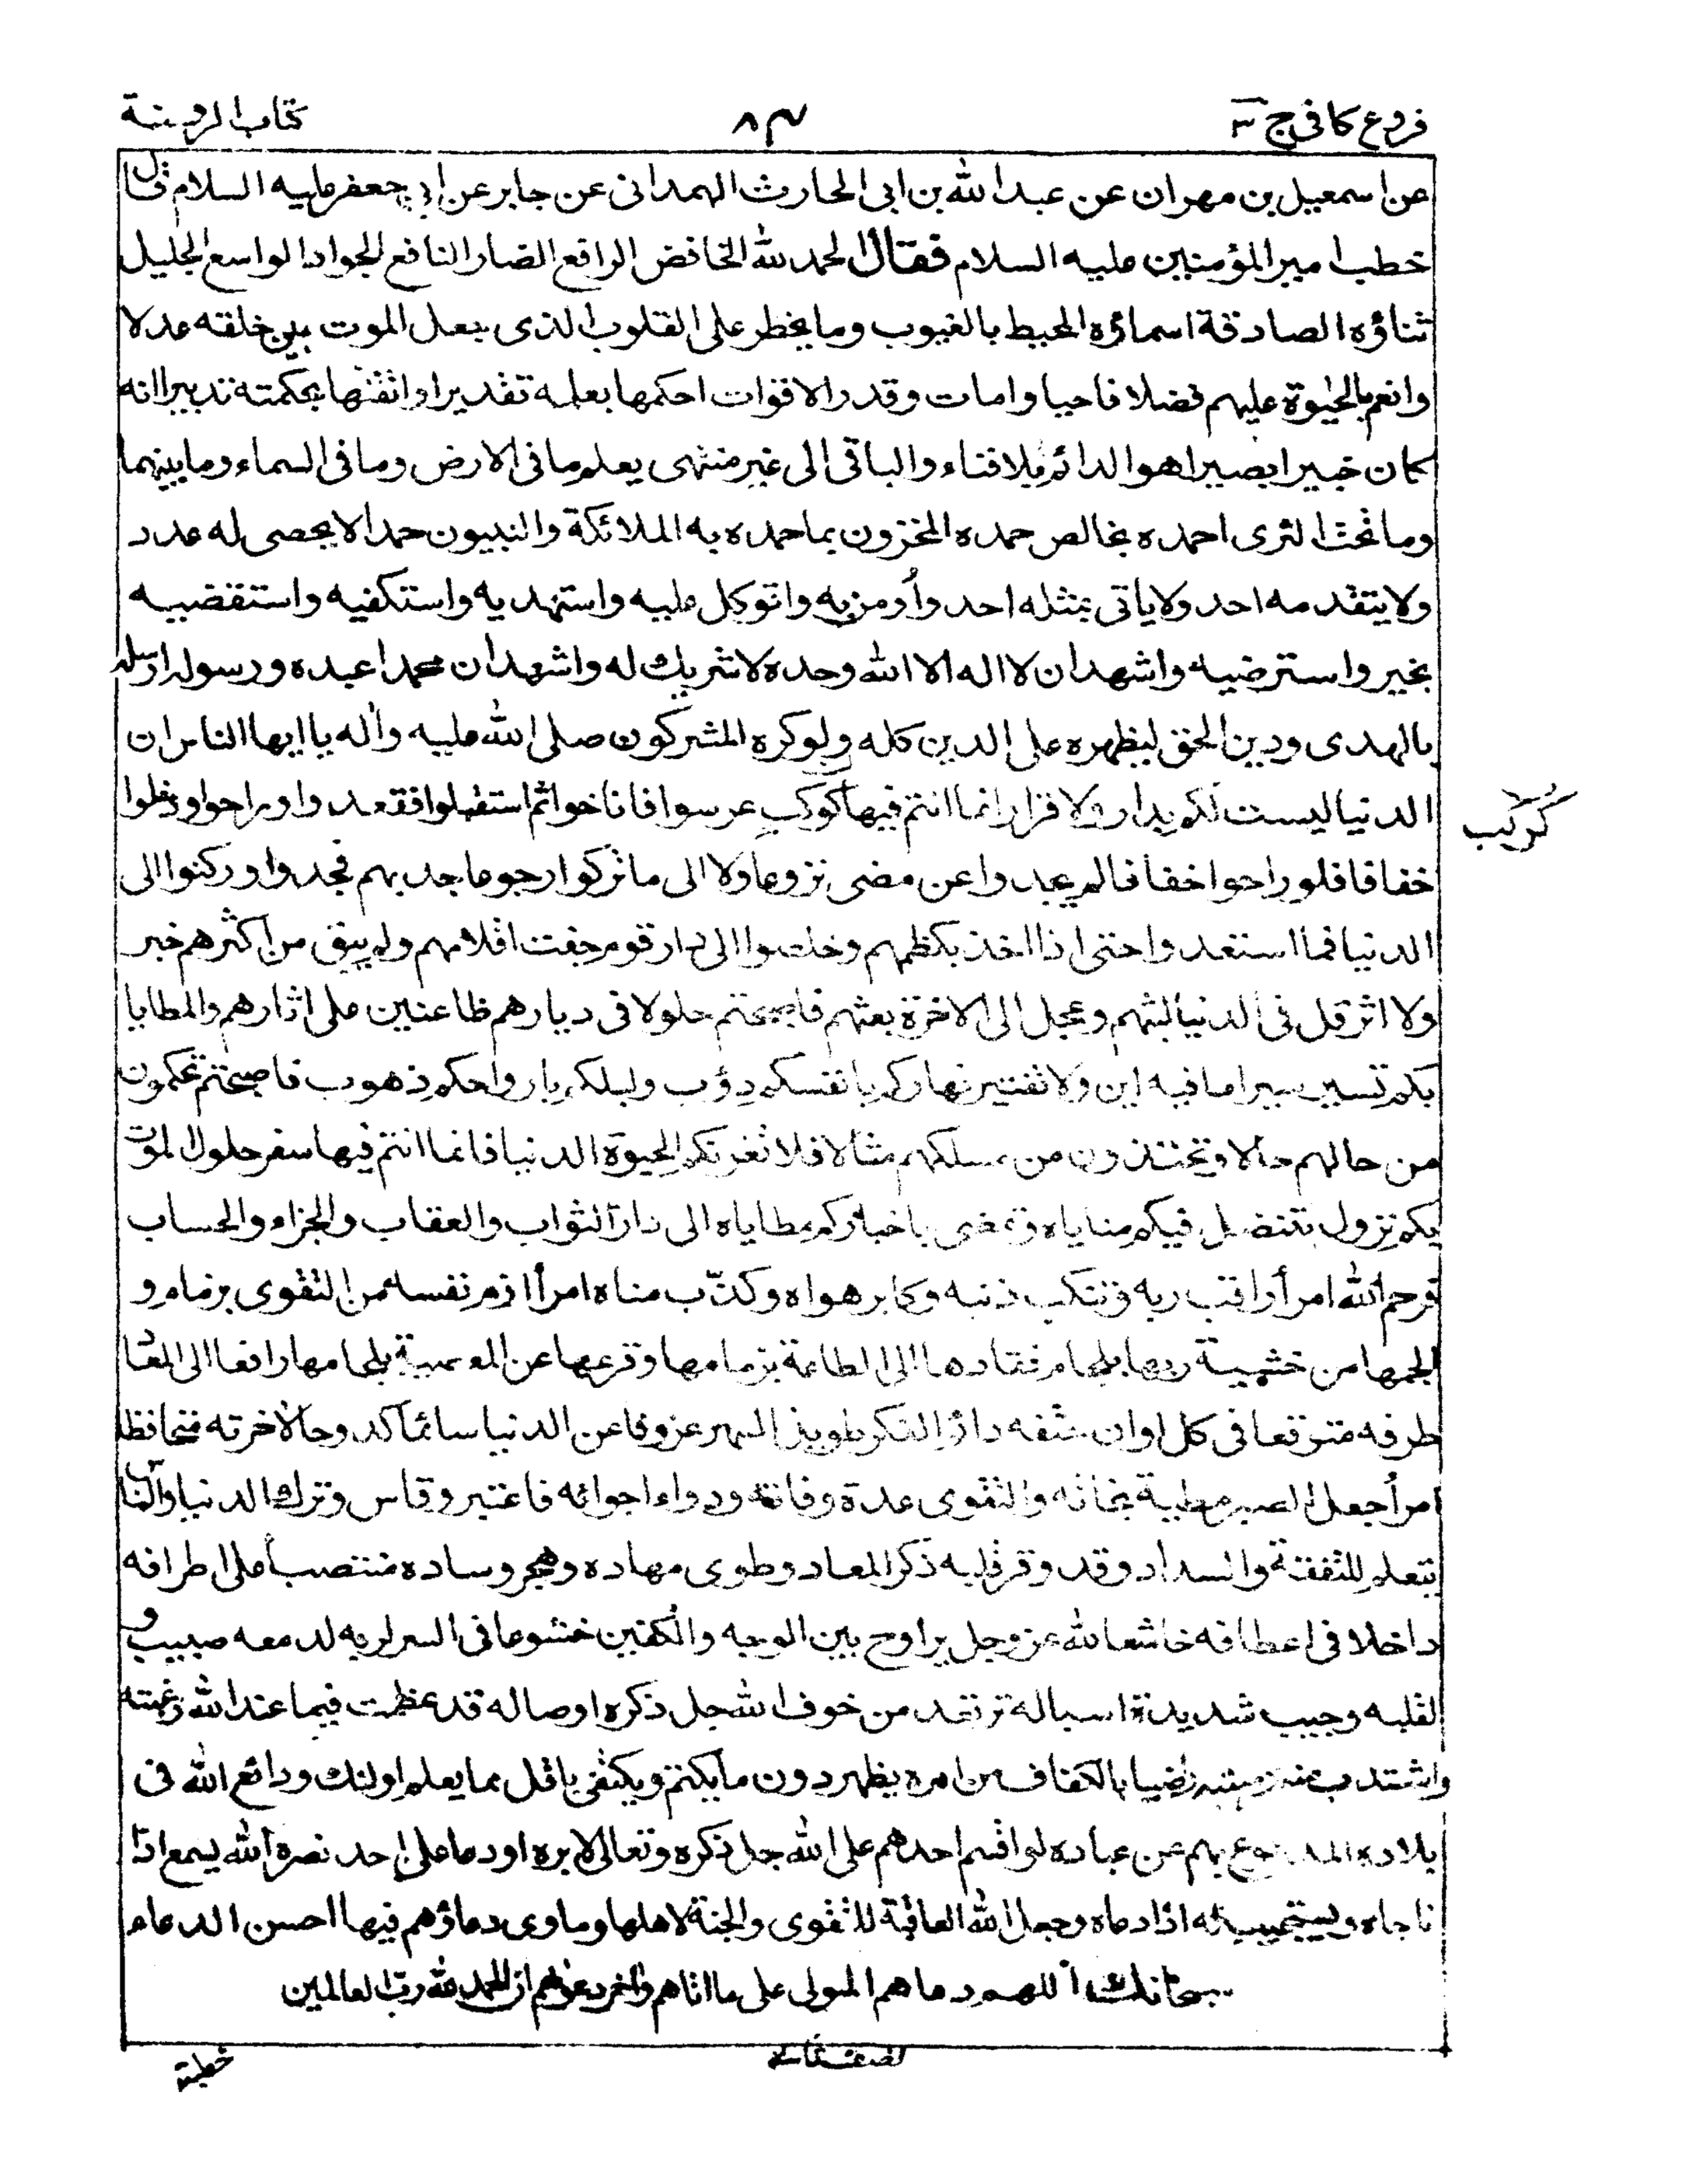 فروع كافى ج ٣
٨٣
كتاب الروضة
عن اسمعيل بن مهران عن عبد الله بن ابى الحارث الهمدانى عن جابر عن ابى جعفر عليه السلام قال
خطب امير المؤمنين عليه السلام فقال الحمد لله الخافض الرافع الضار النافع الجواد الواسع الجليل
ثناؤه الصادقة اسماؤه المحيط بالغيوب وما يخطر على القلوب الذى جعل الموت بين خلقه عدلا
وانعم بالحيوة عليهم فضلا فاحيا وامات وقدر الاقوات احكمها بعلمه تقديرا واتقنها بحكمته تدبيرا انه
كان خبيرا بصيرا هو الدائم بلا فناء والباقى الى غير منتهى يعلم ما فى الارض وما فى السماء وما بينهما
وما تحت الثرى احمده بخالص حمده المخزون بما حمده به الملائكة والنبيون حمدا لا يحصى له عدد
ولا يتقدمه احد ولا ياتى بمثله احد وأومن به واتوكل عليه واستهديه واستكفيه واستقضيه
بخير واسترضيه واشهد ان لا اله الا الله وحده لا شريك له واشهد ان محمدا عبده ورسوله ارسله
بالهدى ودين الحق ليظهره على الدين كله ولو كره المشركون صلى الله عليه وآله يا ايها الناس ان
الدنيا ليست لكم بدار ولا قرار انما انتم فيها كركب عرسوا فاناخوا ثم استقلوا فغدوا وراحوا دخلوا
كركب
خفافا فلو راحوا خفافا لم يجدوا عن مضى نزوعا ولا الى ما تركوا رجوعا جد بهم فجدوا وركنوا الى
الدنيا فما استعدوا حتى اذا اخذ بكظمهم وخلصوا الى دار قوم جفت اقلامهم ولم يبق من اكثرهم خبر
ولا اثر قل فى الدنيا لبثهم وعجل الى الاخرة بعثهم فاصبحتم حلولا فى ديارهم ظاعنين على اثارهم والمطايا
بكم تسير سيرا ما فيه اين ولا تفتير نهاركم بانفسكم دؤب وليلكم بارواحكم ذهوب فاصبحتم تحكون
من حالهم حالا وتحتذون من مسلكهم مثالا فلا تغرنكم الحيوة الدنيا فانما انتم فيها سفر حلول الموت
بكم نزول تنتضل فيكم مناياه وتمضى باخباركم مطاياه الى دار الثواب والعقاب والجزاء والحساب
فرحم الله امرأ راقب ربه وتنكب ذنبه وكابر هواه وكذّب مناه امرأ ازم نفسه من التقوى بزمام و
الجمها من خشية ربها بلجام فقادها الى الطاعة بزمامها وقرعها عن المعصية بلجامها رافعا الى المعاد
طرفه متوقعا فى كل اوان حتفه دائم الفكر طويل السهر عزوفا عن الدنيا سائما كدوحا لاخرته متحافظا
امرأ جعل الصبر مطية نجاته والتقوى عدة وفاته ودواء اجوائه فاعتبر وقاس وترك الدنيا والناس
يتعلم للتفقه والسداد وقد وقر قلبه ذكر المعاد وطوى مهاده وهجر وساده منتصبا على اطرافه
داخلا فى اعطافه خاشعا لله عز وجل يراوح بين الوجه والكفين خشوعا فى السر لربه لدمعه صبيب و
لقلبه وجيب شديدة اسباله ترتعد من خوف الله جل ذكره اوصاله قد عظمت فيما عند الله رغبته
واشتدت منه رهبته راضيا بالكفاف من امره يظهر دون ما يكتم ويكتفى باقل مما يعلم اولئك ودائع الله فى
بلاده المدفوع بهم عن عباده لو اقسم احدهم على الله جل ذكره وتعالى لابره او دعا على احد نصره الله يسمع اذا
ناجاه ويستجيب له اذا دعاه وجعل الله العاقبة للتقوى والجنة لاهلها وماوى دعاؤهم فيها احسن الدعاء
سبحانك اللهم دعاهم المولى على ما اتاهم وآخر دعوٰهم ان الحمد لله رب العالمين
خطبة